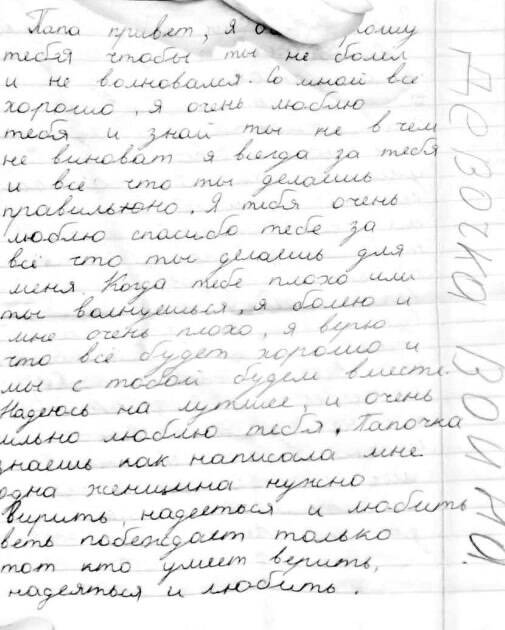 Папа привет, я о прошу
тебя чтобы ты не болел
и не волновался. Со мной все
хорошо, я очень люблю
тебя и знай ты не в чем
не виноват я всегда за тебя
и все что ты делаешь
правильно. Я тебя очень
люблю спасибо тебе за
всё что ты делаешь для
меня. Когда тебе плохо или
ты волнуешься, я болею и
мне очень плохо, я верю
что все будет хорошо и
мы с тобой будем вместе.
Надеюсь на лутшее, и очень
ильно люблю тебя. Папочка
знаешь как написала мне
одна женщина нужно
верить, надееться и любить
веть побеждает только
тот кто умеет верить,
надеяться и любить.
девочка война